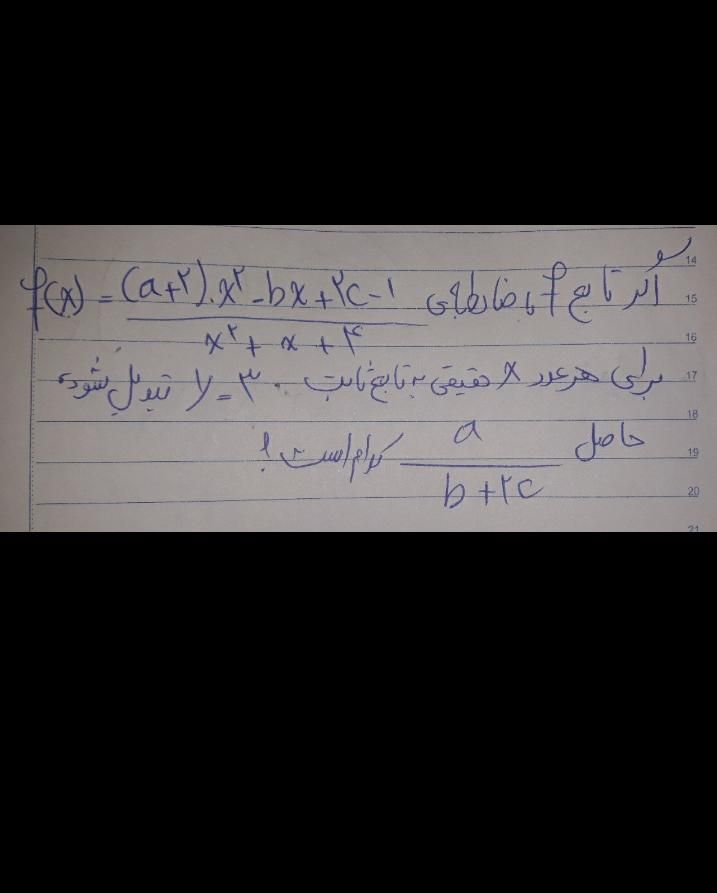 س اگر تابع f با ضابطه‌ی f(x) = (a+۲).x^۲ - bx + ۲c - ۱
x^۲ + x + ۴
برای هر عدد x حقیقی به تابع ثابت y = ۳ تبدیل شود،
حاصل a کدام است؟
b + ۲c
14
15
16
17
18
19
20
21